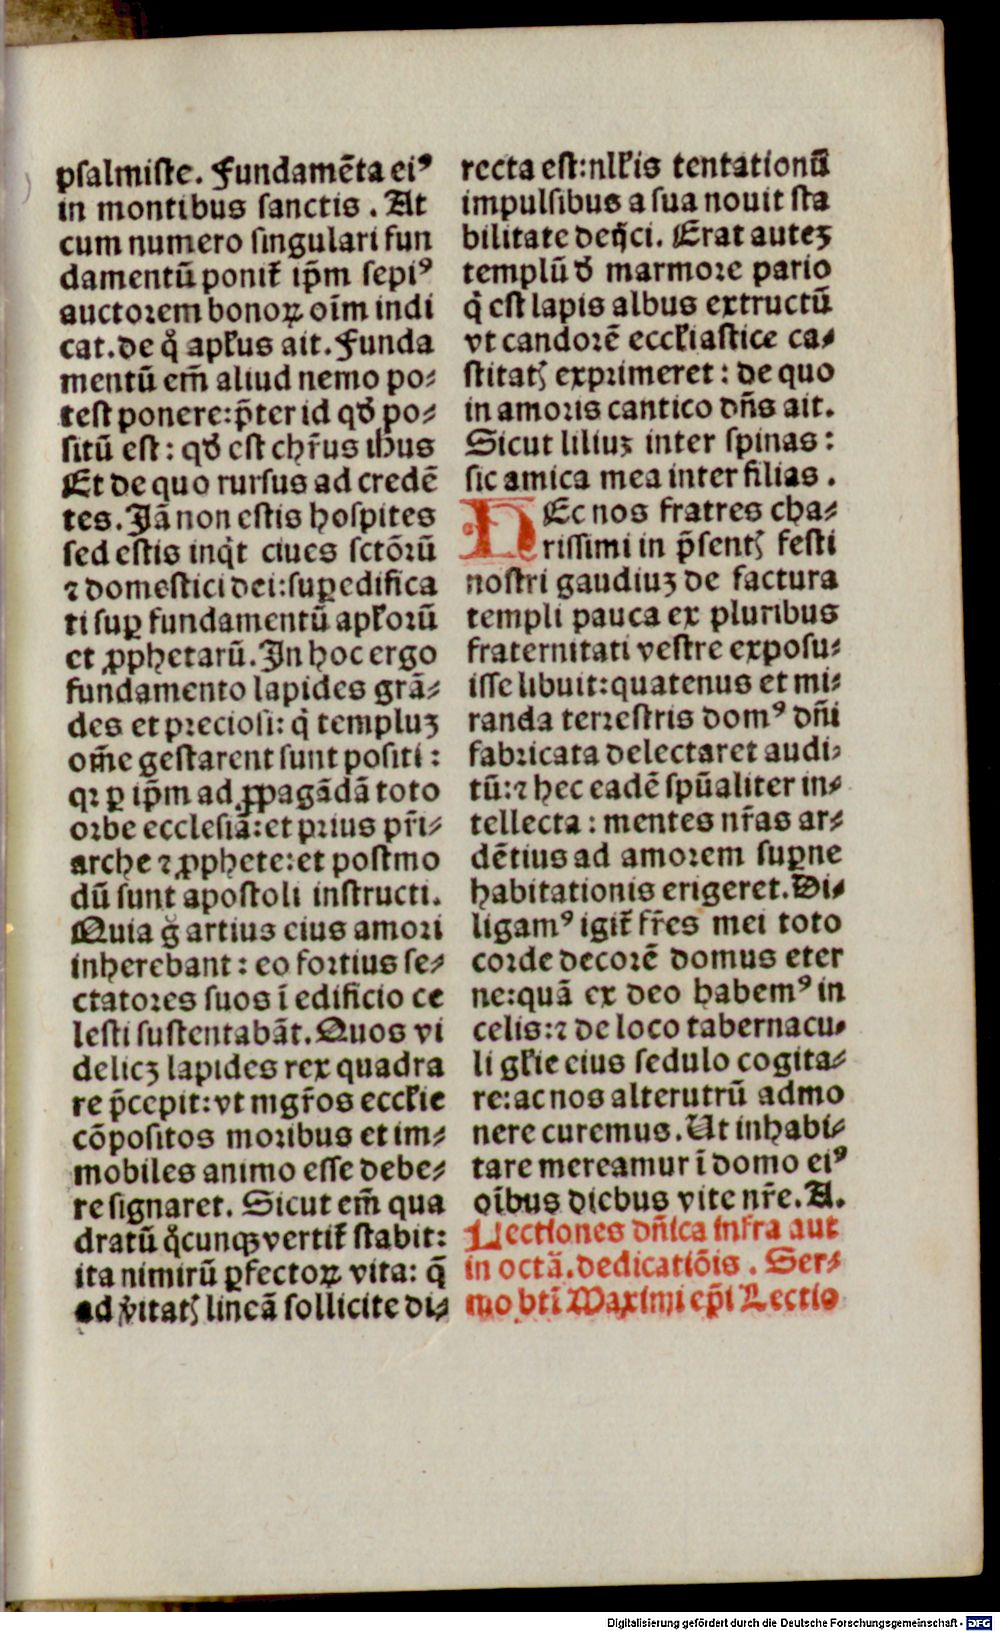 psalmiste. Fundamēta eiꝰ
in montibus sanctis. At
cum numero singulari fun
damentū ponit᷑ ip̄m sepiꝰ
auctorem bonoꝝ oīm indi
cat. de qͦ apl̓us ait. Funda
mentū em̄ aliud nemo po⸗
test ponere: p̄ter id qđ po⸗
sitū est: qđ est chr̄us ihus
Et de quo rursus ad credē
tes. Jā non estis hospites
sed estis inq̇t ciues sctōrū
⁊ domestici dei: suꝑedifica
ti suꝑ fundamentū apl̓orū
et ꝓphetarū. In hoc ergo
fundamento lapides grā⸗
des et preciosi: q̇ templuꝫ
om̄e gestarent sunt positi:
qꝛ ꝑ ip̄m ad ꝓpagādā toto
orbe ecclesiā: et prius pr̄i⸗
arche ⁊ ꝓphete: et postmo
dū sunt apostoli instructi.
Quia g̊ artius eius amori
inherebant: eo fortius se⸗
ctatores suos ī edificio ce
lesti sustentabāt. Quos vi
delicꝫ lapides rex quadra
re p̄cepit: vt mgr̄os eccl̓ie
cōpositos moribus et im⸗
mobiles animo esse debe⸗
re signaret. Sicut em̄ qua
dratū qͦcunqꝫ vertit᷑ stabit:
ita nimirū ꝑfectoꝝ vita: q̄
ad v̓itatꝭ lineā sollicite di⸗
recta est: nl̓l̓is tentationū
impulsibus a sua nouit sta
bilitate deijci. Erat auteꝫ
templū đ marmore pario
q̇ est lapis albus extructū
vt candorē eccl̓iastice ca⸗
stitatꝭ exprimeret: de quo
in amoris cantico dn̄s ait.
Sicut liliuꝫ inter spinas:
sic amica mea inter filias.
HEc nos fratres cha⸗
rissimi in p̄sentꝭ festi
nostri gaudiuꝫ de factura
templi pauca ex pluribus
fraternitati vestre exposu⸗
isse libuit: quatenus et mi⸗
randa terrestris domꝰ dn̄i
fabricata delectaret audi⸗
tū: ⁊ hec eadē spūaliter in⸗
tellecta: mentes nr̄as ar⸗
dētius ad amorem suꝑne
habitationis erigeret. Di⸗
ligamꝰ igit᷑ fr̄es mei toto
corde decorē domus eter
ne: quā ex deo habemꝰ in
celis: ⁊ de loco tabernacu⸗
li gl̓ie eius sedulo cogita⸗
re: ac nos alterutrū admo
nere curemus. Ut inhabi⸗
tare mereamur ī domo eiꝰ
oībus diebus vite nr̄e. A.
Lectiones dn̄ica infra aut
in octā. dedicatiōis. Ser⸗
mo btī Maximi ep̄i Lectio
Digitalisierung gefördert durch die Deutsche Forschungsgemeinschaft - DFG